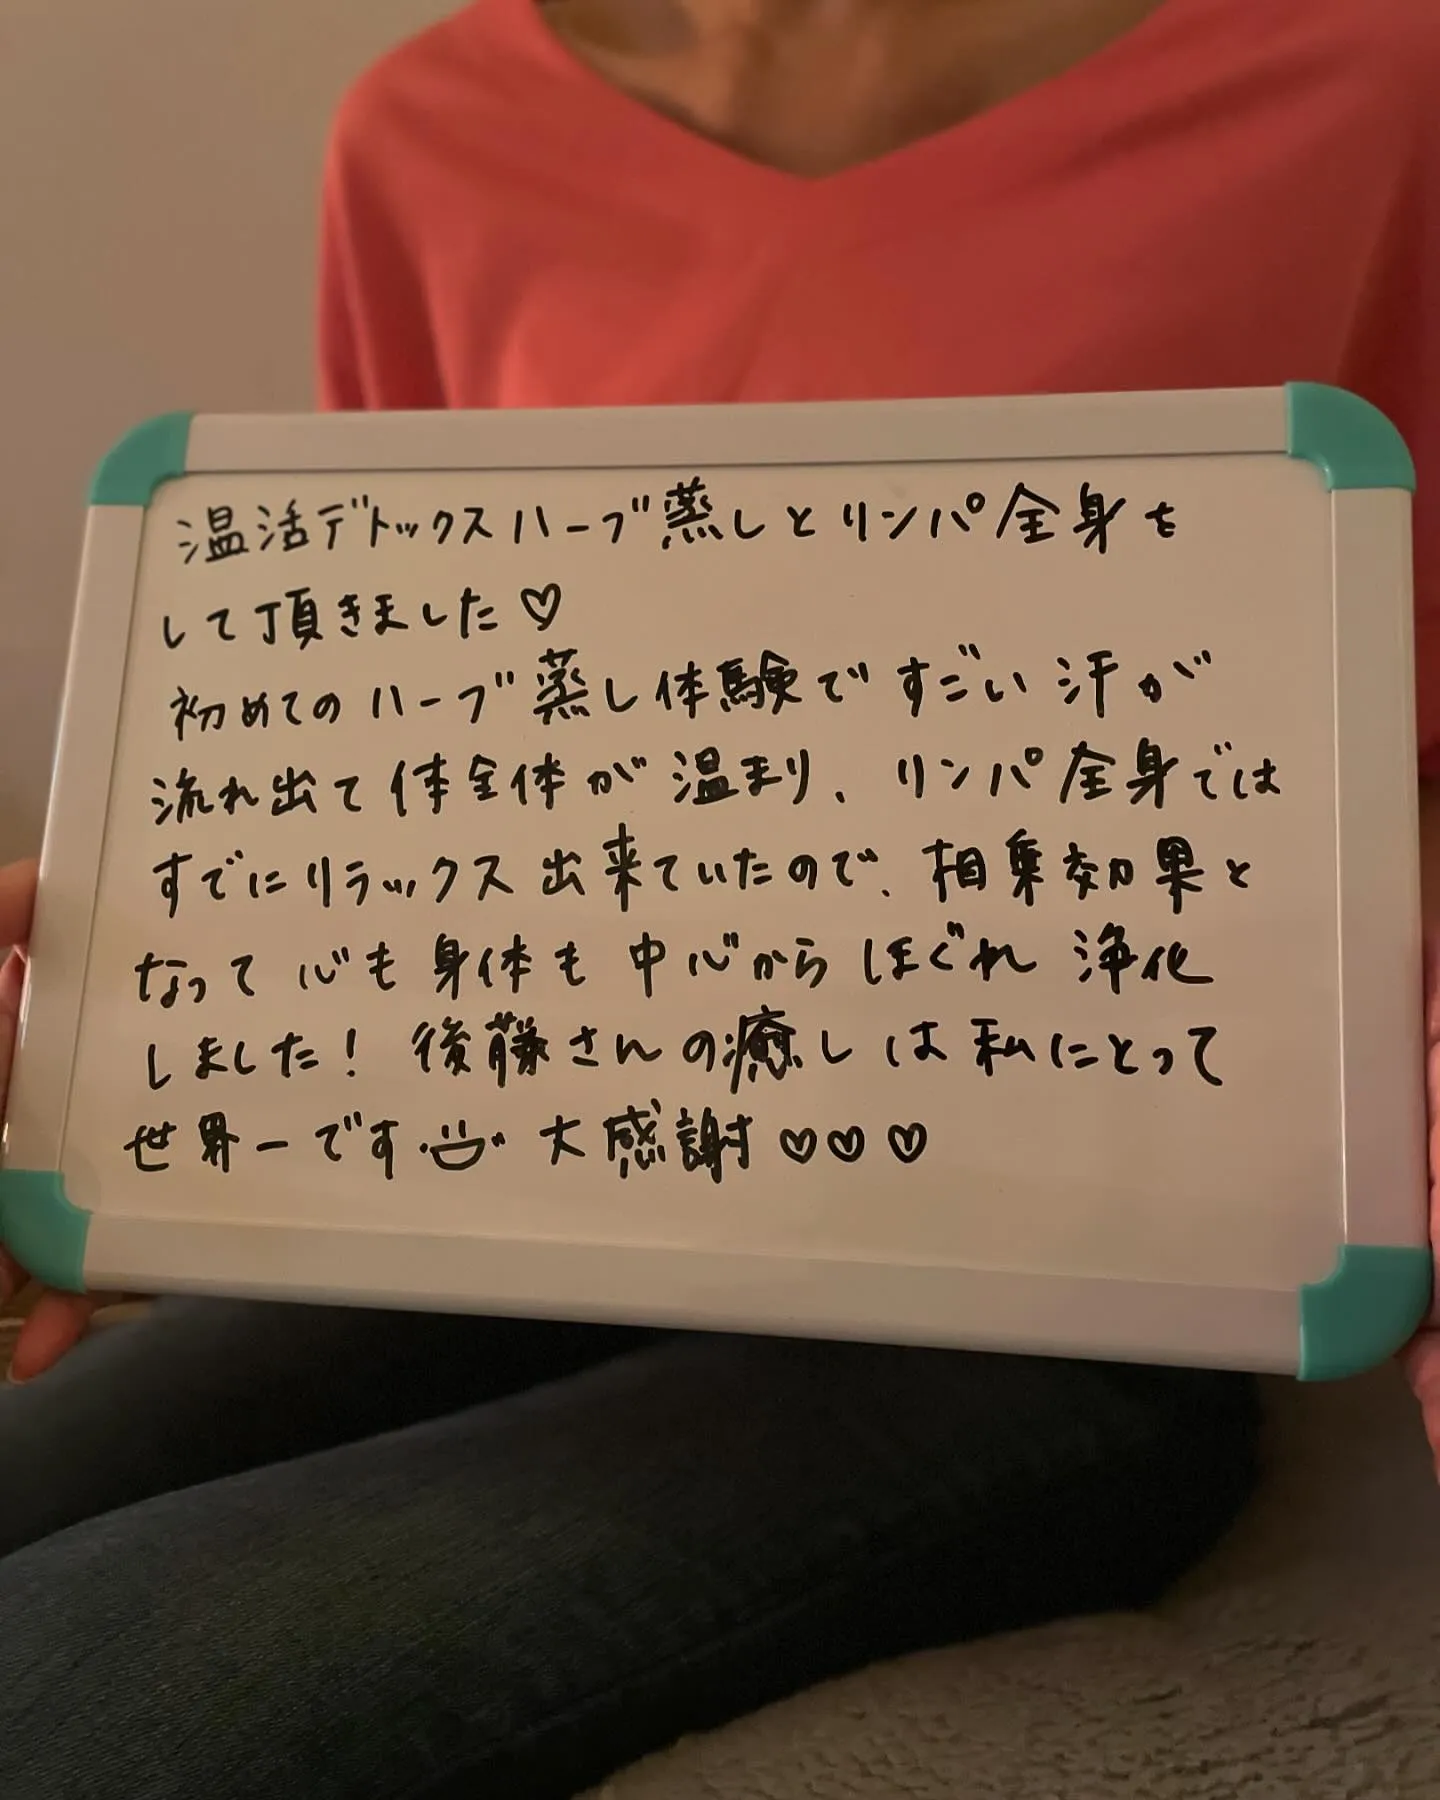 温活デトックスハーブ蒸しとリンパ全身を
して頂きました♡
初めてのハーブ蒸し体験ですごい汗が
流れ出て体全体が温まり、リンパ全身では
すでにリラックス出来ていたので、相乗効果と
なって心も身体も中心からほぐれ浄化
しました！後藤さんの癒しは私にとって
世界一です 大感謝♡♡♡